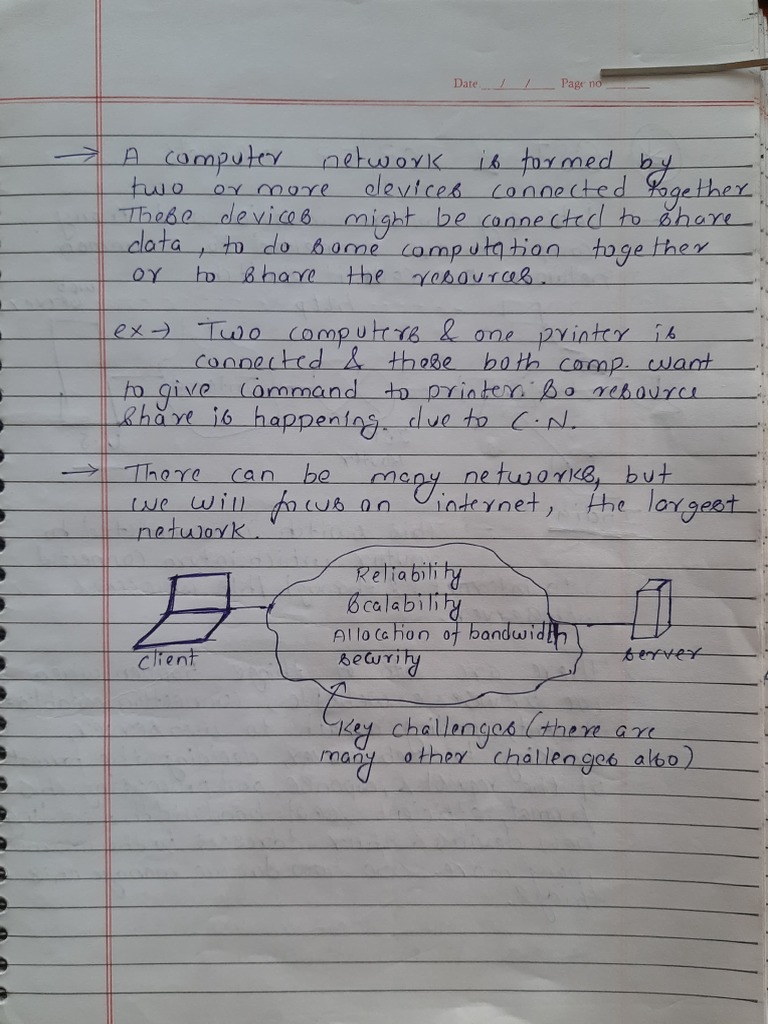 Date __/__/__ Page no ____
→ A computer network is formed by
two or more devices connected together
These devices might be connected to share
data, to do some computation together
or to share the resources.
ex → Two computers & one printer is
connected & those both comp. want
to give command to printer. So resource
share is happening. due to C.N.
→ There can be many networks, but
we will focus on internet, the largest
network.
Reliability
Scalability
Allocation of bandwidth
security
client
server
Key challenges (there are
many other challenges also)